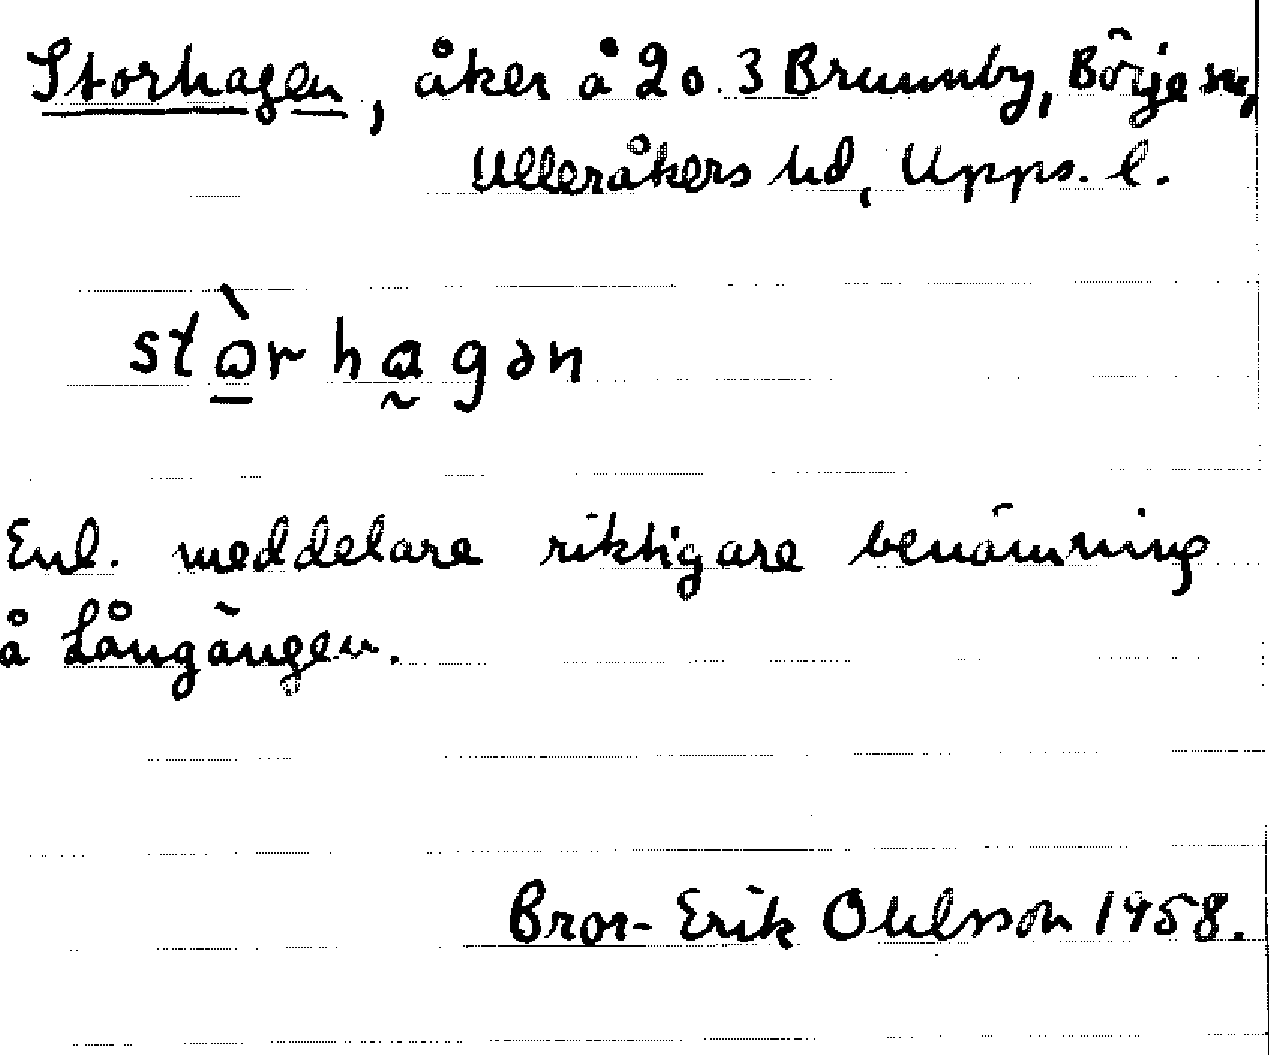 Storhagen, åker å 2 o. 3 Brunnby, Börje sn,
Ulleråkers hd, Upps. l.
stɷ̀r hagən
Enl. meddelare riktigare benämning
å Långängen.
Bror-Erik Ohlsson 1958.